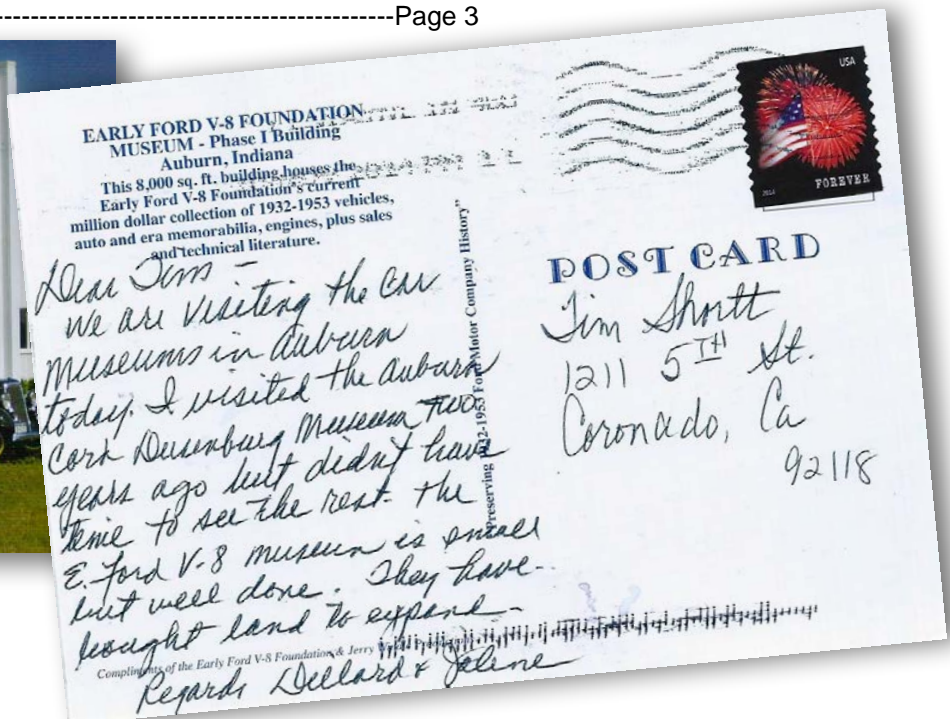 Page 3
EARLY FORD V-8 FOUNDATION
MUSEUM - Phase I Building
Auburn, Indiana
This 8,000 sq. ft. building houses the
Early Ford V-8 Foundation's current
million dollar collection of 1932-1953 vehicles,
auto and era memorabilia, engines, plus sales
and technical literature.
Dear Tim -
We are visiting the Car
Museums in Auburn
today. I visited the Auburn
Cord Dusenburg Museum two
years ago but didn't have
time to see the rest. The
E. Ford V-8 museum is small
but well done. They have
bought land to expand -
Regards Dellard & Jolene
Compliments of the Early Ford V-8 Foundation & Jerry
Preserving 1932-1953 Ford Motor Company History"
USA
FOREVER
POST CARD
Tim Shortt
1211 5TH St.
Coronado, Ca
92118